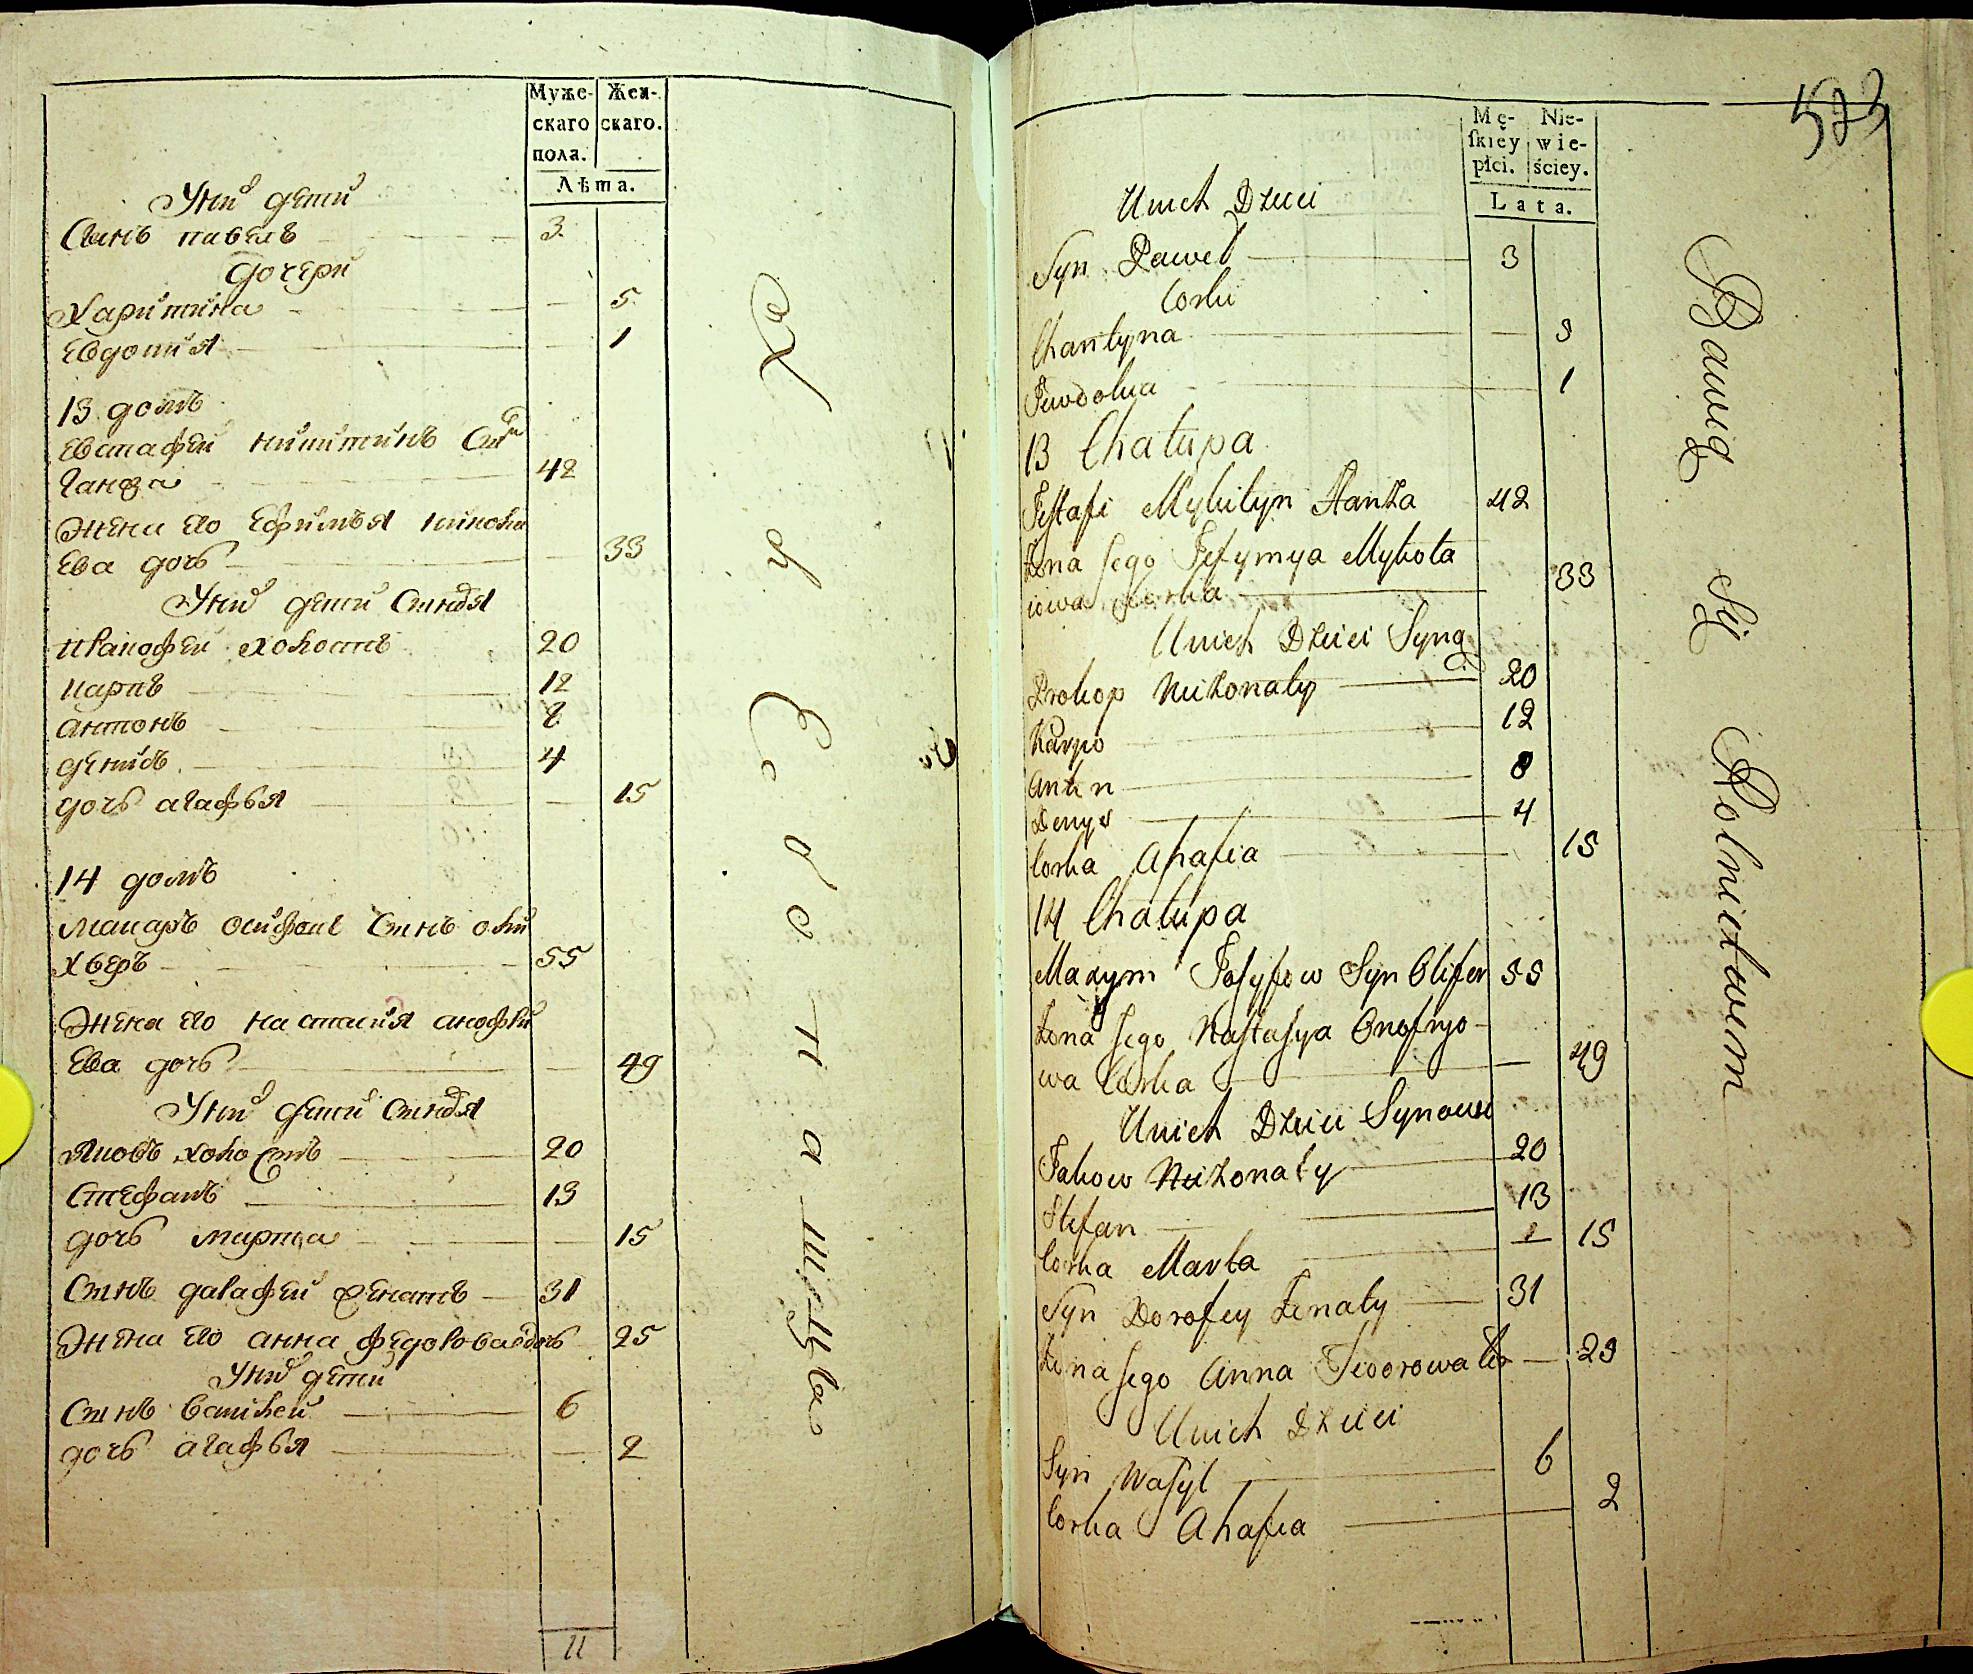 Муже-
скаго
пола.
Жен-
скаго.
Лѣта.
Уних дети
Синъ павелъ 3
дочери
Харитина 5
Евдокия 1
13 домъ
Евстафеи никитинъ Синъ
Ганжа 42
Жена его Ефимья николи
Ева дочъ 33
Уних дети Синовя
Пракофеи холостъ 20
карпъ 12
антонъ 8
денисъ 4
дочъ агафья 15
14 домъ
макаръ осифовъ Синъ оли
хверъ 55
Жена его настасия анофри
Ева дочъ 49
Уних дети Синовя
яковъ холостъ 20
Стефанъ 13
дочъ марта 15
Синъ дарафеи женатъ 31
Жена его анна федорова дочъ 25
Уних дети
Синъ василеи 6
дочъ агафья 2
11
Mę-
skiey
płci.
Nie-
wie-
ściey.
Lata.
573
Unich Dzieci
Syn Paweł 3
Corki
Charityna 5
Jewdokia 1
13 Chałupa
Jestafi Mykityn Hanża 42
Żona Jego Jefymya Mykoła
iowa Corka 33
Unich Dzieci Syną
Prokop Nieżonaty 20
Karpo 12
Anton 8
Denys 4
Corka Ahafia 15
14 Chałupa
Maxym Josyfow Syn Olifer 55
Żona Jego Nastasya Onofryo-
wa Corka 49
Unich Dzieci Synowie
Jakow Nieżonaty 20
Stefan 13
Corka Marta 15
Syn Dorofey Żenaty 31
Żona Jego Anna Fedorowa Cor 25
Unich Dzieci
Syn Wasyl 6
Corka Ahafia 2
Bawią Się Rolnictwem